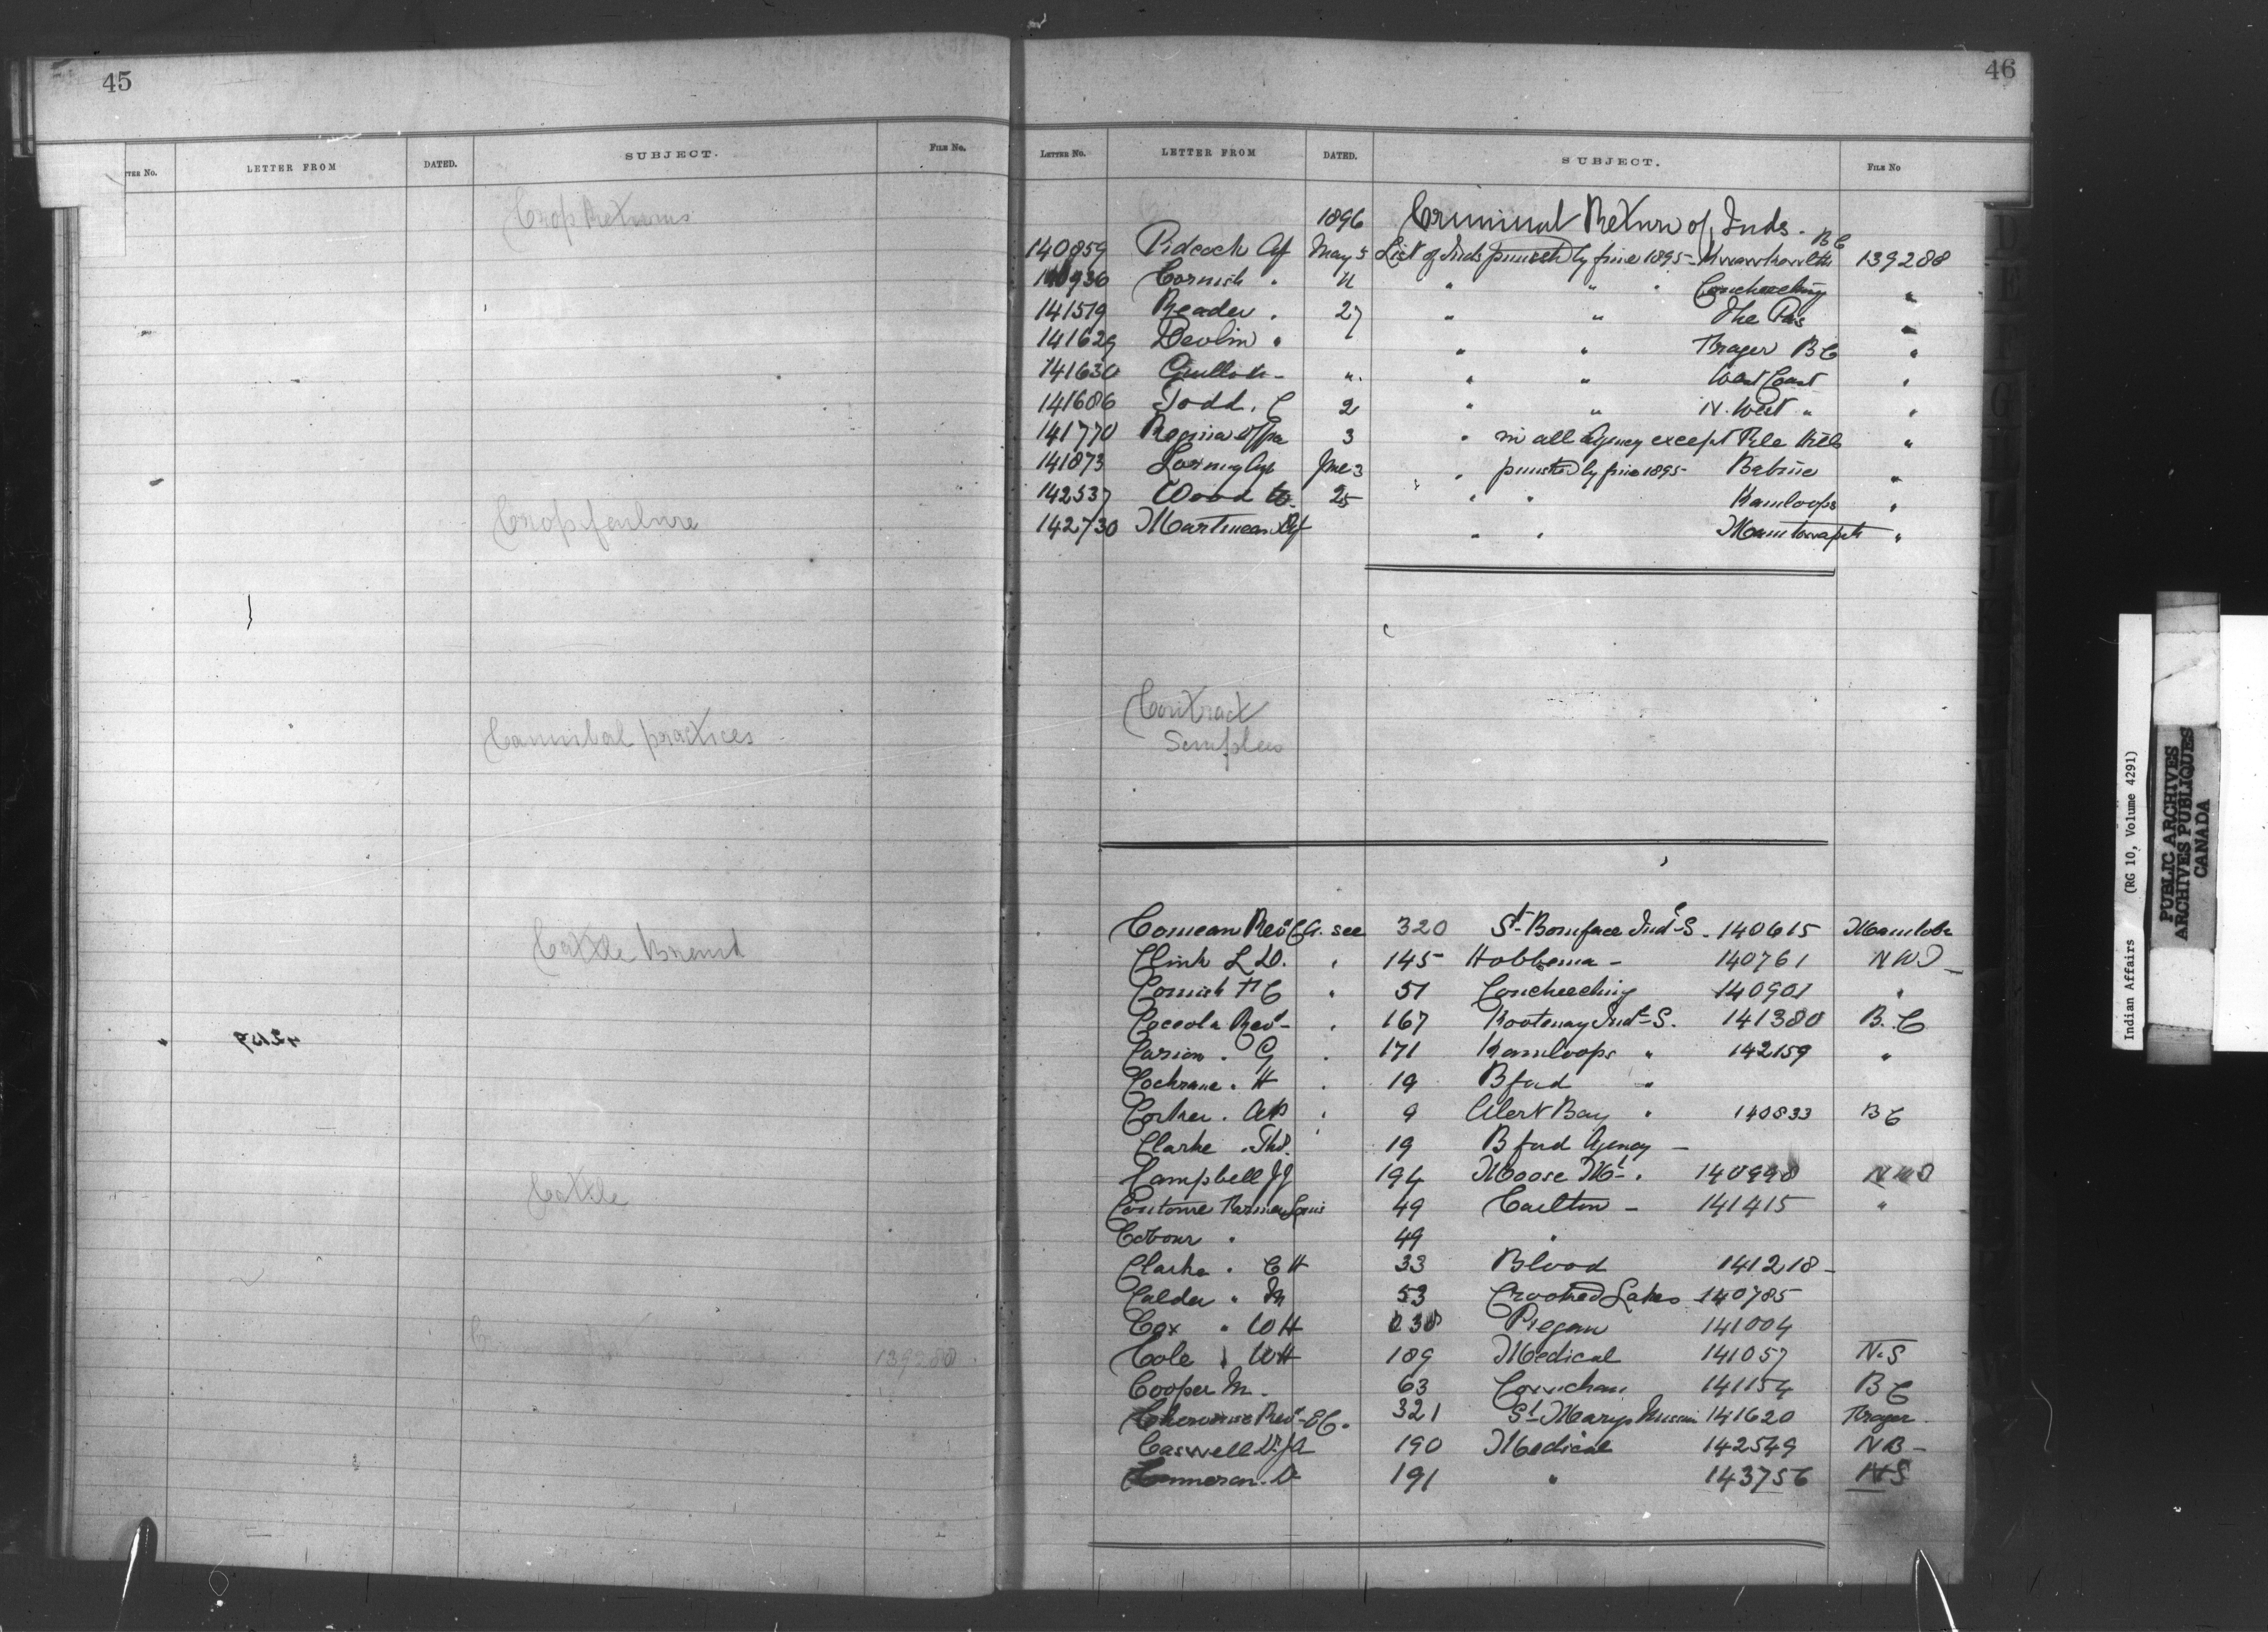 45
TTER No. LETTER FROM DATED. SUBJECT. FILE No.
Crop Returns
Crop failure
Cannibal practices
Cattle Brand
Cattle
139288
46
LETTER No. LETTER FROM DATED. SUBJECT. FILE No
1896 Criminal Return of Inds.
140859 Pidcock Agt May 5 List of Inds punishd by fine 1895 - BC 139288
Cornish " " " " Concheeching "
141519 Reader . 27 " " The Pas "
141629 Devlin " " " Frazer BC "
141630 Guillod - " " " West Coast "
141686 Todd. C 2 " " N. West " "
141770 Regina Offce 3 " in all Agency except File Hills "
141873 Loring Agt June 3 " punished by fine 1895 - Babine "
142537 Wood W. 25 " " Kamloops "
142730 Martineau Agt " " Manitowapah "
Contract
Samples
Comeau Revd G.A. see 320 St. Boniface Indl S. 140615 Manitoba
Clink L D. " 145 Hobbema - 140761 NWT
Cornish H C " 51 Concheeching 140901 "
Coccola Revd - " 167 Kootenay Indl S. 141380 B.C
Carion . G . 171 Kamloops " 142159 "
Cochrane . H . 19 Bford "
Corker . AW . 9 Alert Bay " 140833 BC
Clarke . Thos. 19 Bford Agency -
Campbell JJ 194 Moose Mt . 140998 NWT
Coutome Farmer Louis 49 Carlton - 141415 "
49 "
Clarke . C H 33 Blood 141218 -
Calder " M 53 Crooked Lakes 140785
Cox " W H Piegan 141004
Cole " WH 189 Medical 141057 N.S
Cooper M. 63 Cowichan 141154 BC
Revd - E C. 321 St Marys Mission 141620 Frazer
Caswell Dr J A 190 Medical 142549 NB -
Cameron. D 191 " 143756 NS
Indian Affairs (RG 10, Volume 4291)
PUBLIC ARCHIVES
ARCHIVES PUBLIQUES
CANADA